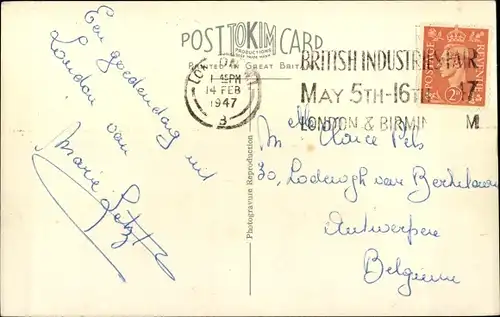 POST CARD
TOKIM
PRODUCTIONS
PRINTED IN GREAT BRITAIN
LONDON
1 15PM
14 FEB
1947
B
BRITISH INDUSTRIES FAIR
MAY 5TH-16TH 1947
LONDON & BIRMIN M
POSTAGE
REVENUE
2D
Een goedendag uit
London van
Marie
Photogravure Reproduction
M Claire Pels
30, Lodewyk van Berckelaan
Antwerpen
Belgium